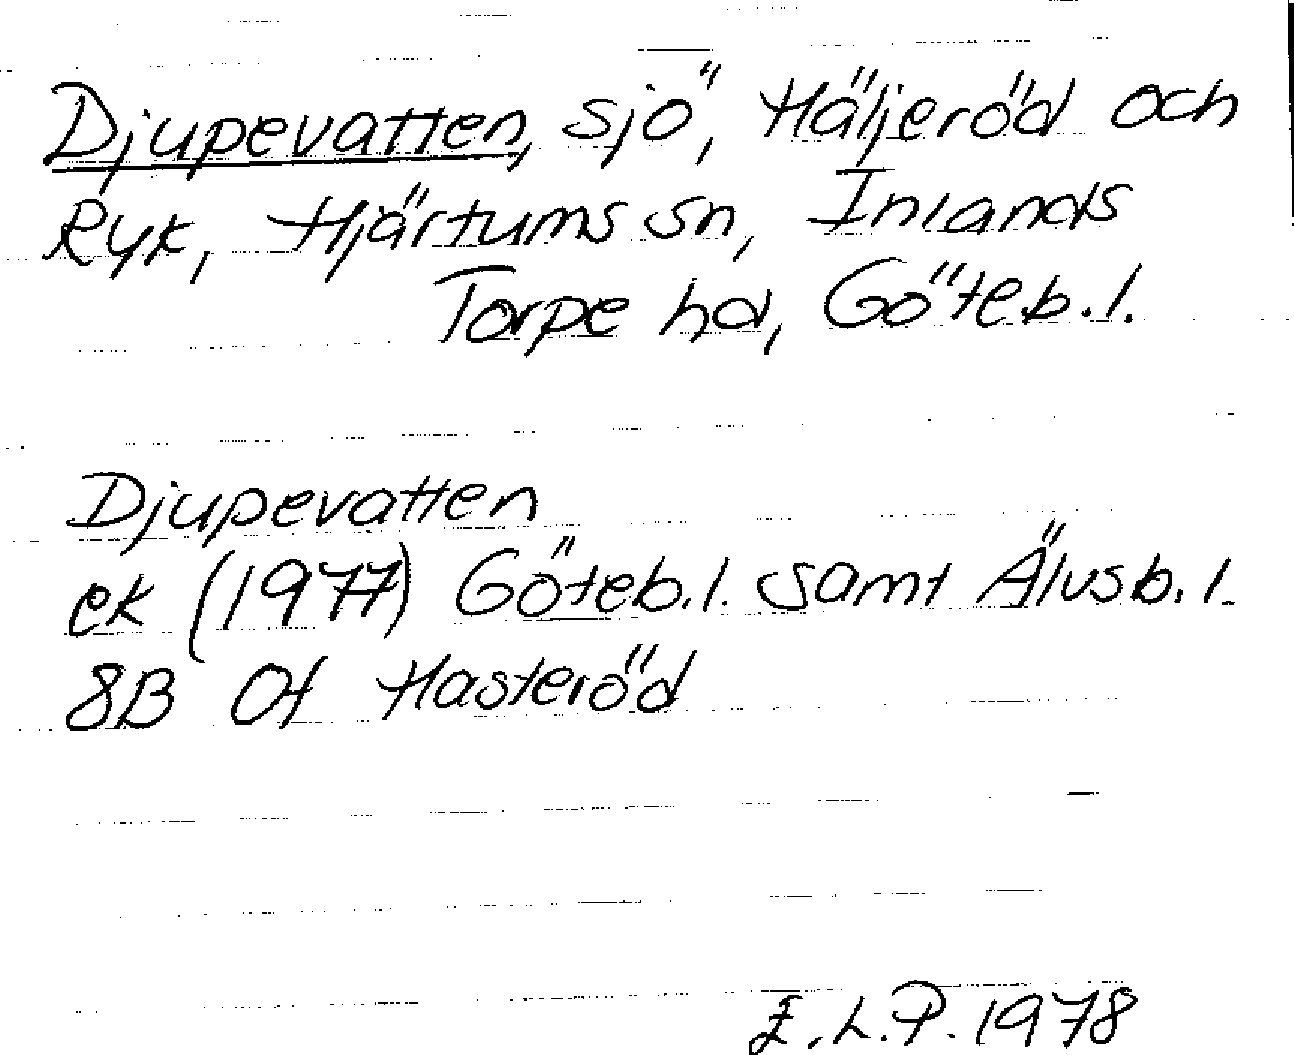 Djupevatten, sjö, Häljeröd och
Ryk, Hjärtums sn, Inlands
Torpe hd, Göteb.l.
Djupevatten
ek (1977) Göteb.l. samt Älvsb.l.
8B 0f Hasteröd
E.L.P. 1978